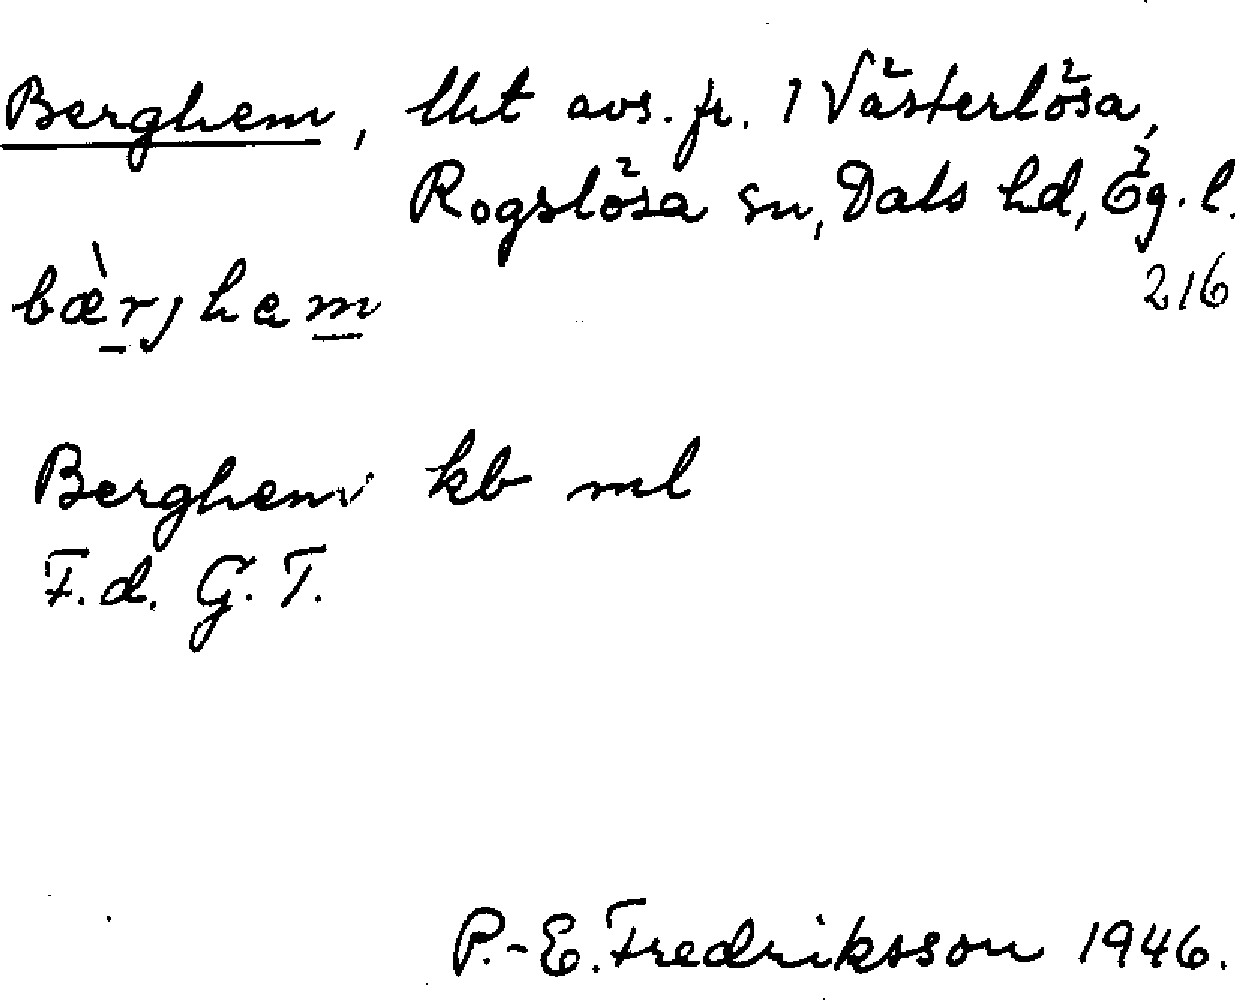 Berghem, lht avs. fr. 1 Västerlösa,
Rogslösa sn, Dals hd, Ög. l.
216
bæ̀rjham
Berghem kb ml
F.d. G.T.
P.-E. Fredriksson 1946.